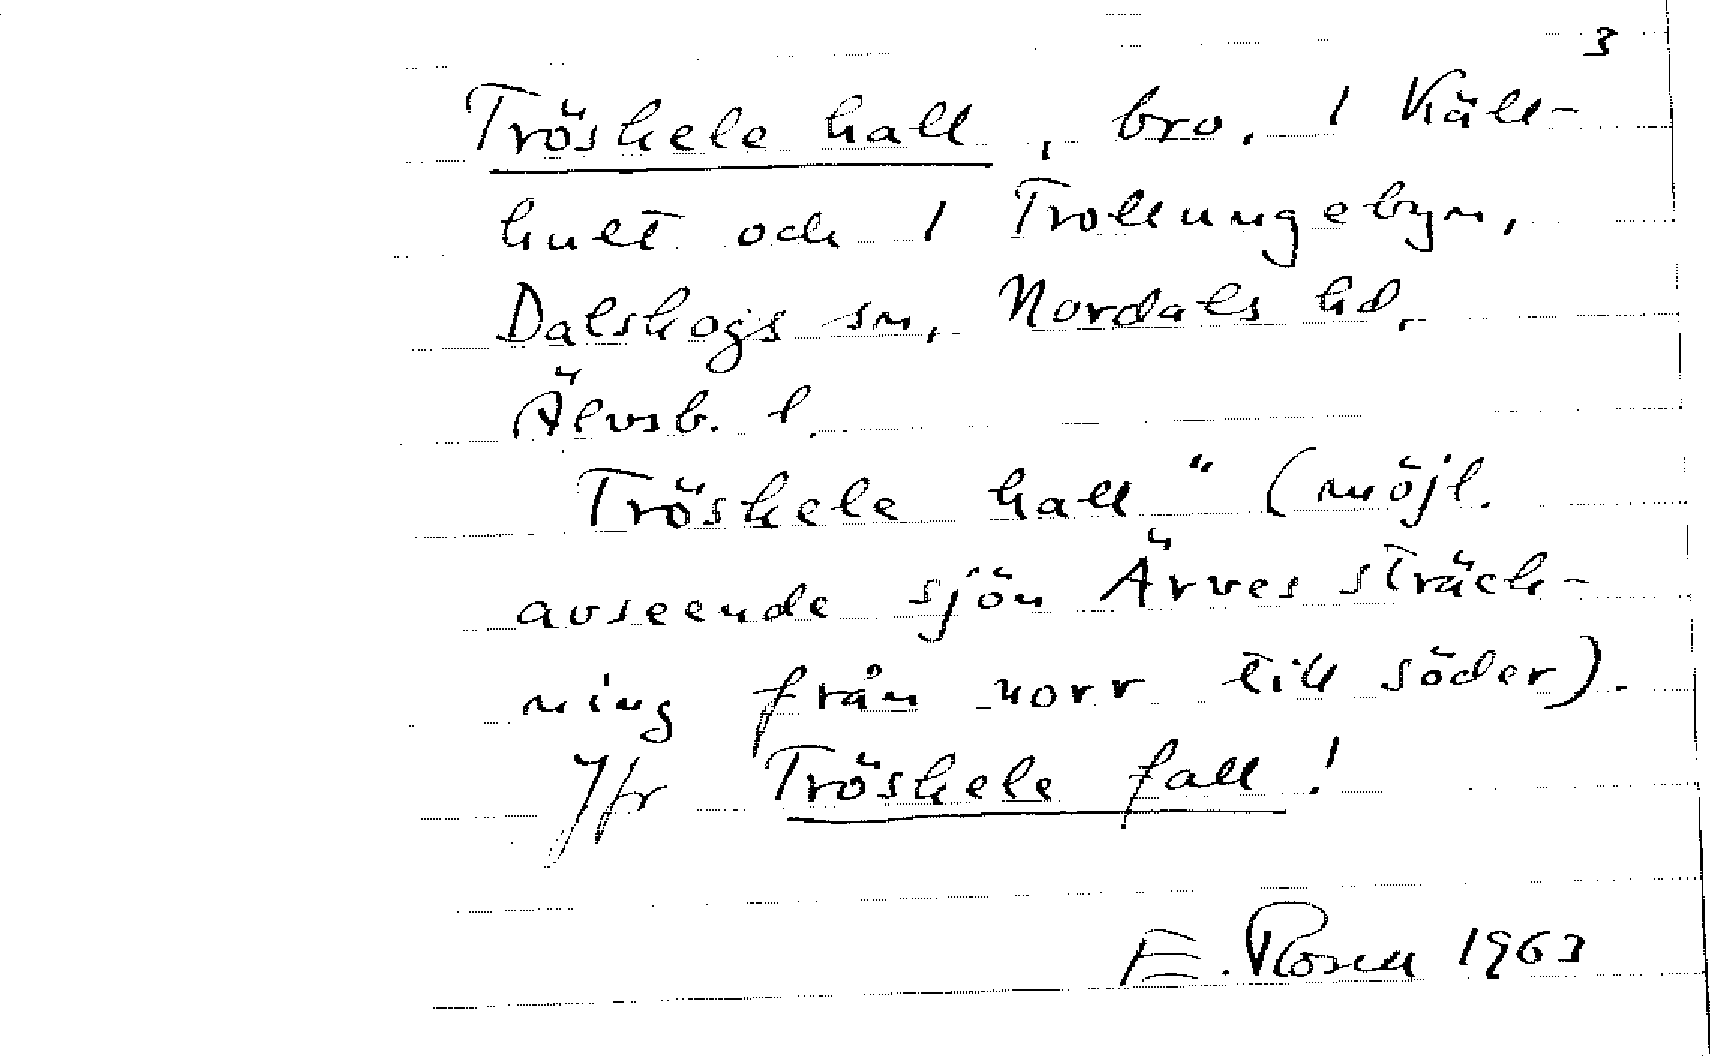 3
Tröskele hall, bro. 1 Käll-
hult och 1 Trollungebyn,
Dalskogs sn, Nordals hd,
Älvsb. l.
Tröskele hall" (möjl.
avseende sjön Ärves sträck-
ning från norr till söder).
Jfr Tröskele fall!
E. Rosell 1963